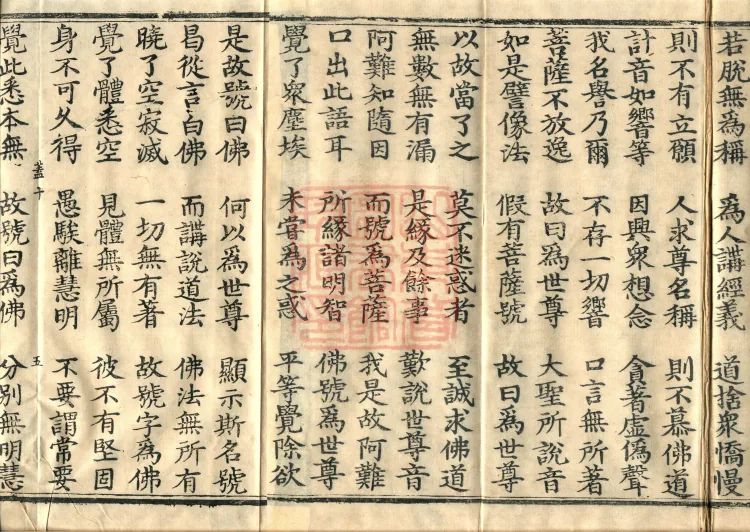 若脫無爲稱 爲人講經義 道捨衆憍慢
則不有立願 人求尊名稱 則不慕佛道
計音如響等 因興衆想念 貪著虛僞聲
我名譽乃爾 不存一切響 口言無所著
菩薩不放逸 故曰爲世尊 大聖所說音
如是譬像法 假有菩薩號 故曰爲世尊
以故當了之 莫不迷惑者 至誠求佛道
無數無有漏 是緣及餘事 歎說世尊音
阿難知隨因 而號爲菩薩 我是故阿難
口出此語耳 所緣諸明智 佛號爲世尊
覺了衆塵埃 未嘗爲之惑 平等覺除欲
是故號曰佛 何以爲世尊 顯示斯名號
曷從言白佛 而講說道法 佛法無所有
曉了空寂滅 一切無有著 故號字爲佛
覺了體悉空 見體無所屬 彼不有堅固
身不可久得 愚騃離慧明 不要謂常要
五
覺此悉本無 故號曰爲佛 分別無明慧